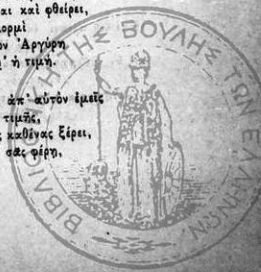 αι καὶ φθείρει,
ορμὶ
ον Ἀργύρη
ἡ τιμή.
ἀπ' αὐτὸν ἐμεῖς
τιμῆς,
ς καθένας ξέρει,
σᾶς φέρη,
ΒΙΒΛΙΟΘΗΚΗ ΤΗΣ ΒΟΥΛΗΣ ΤΩΝ ΕΛΛΗΝΩΝ